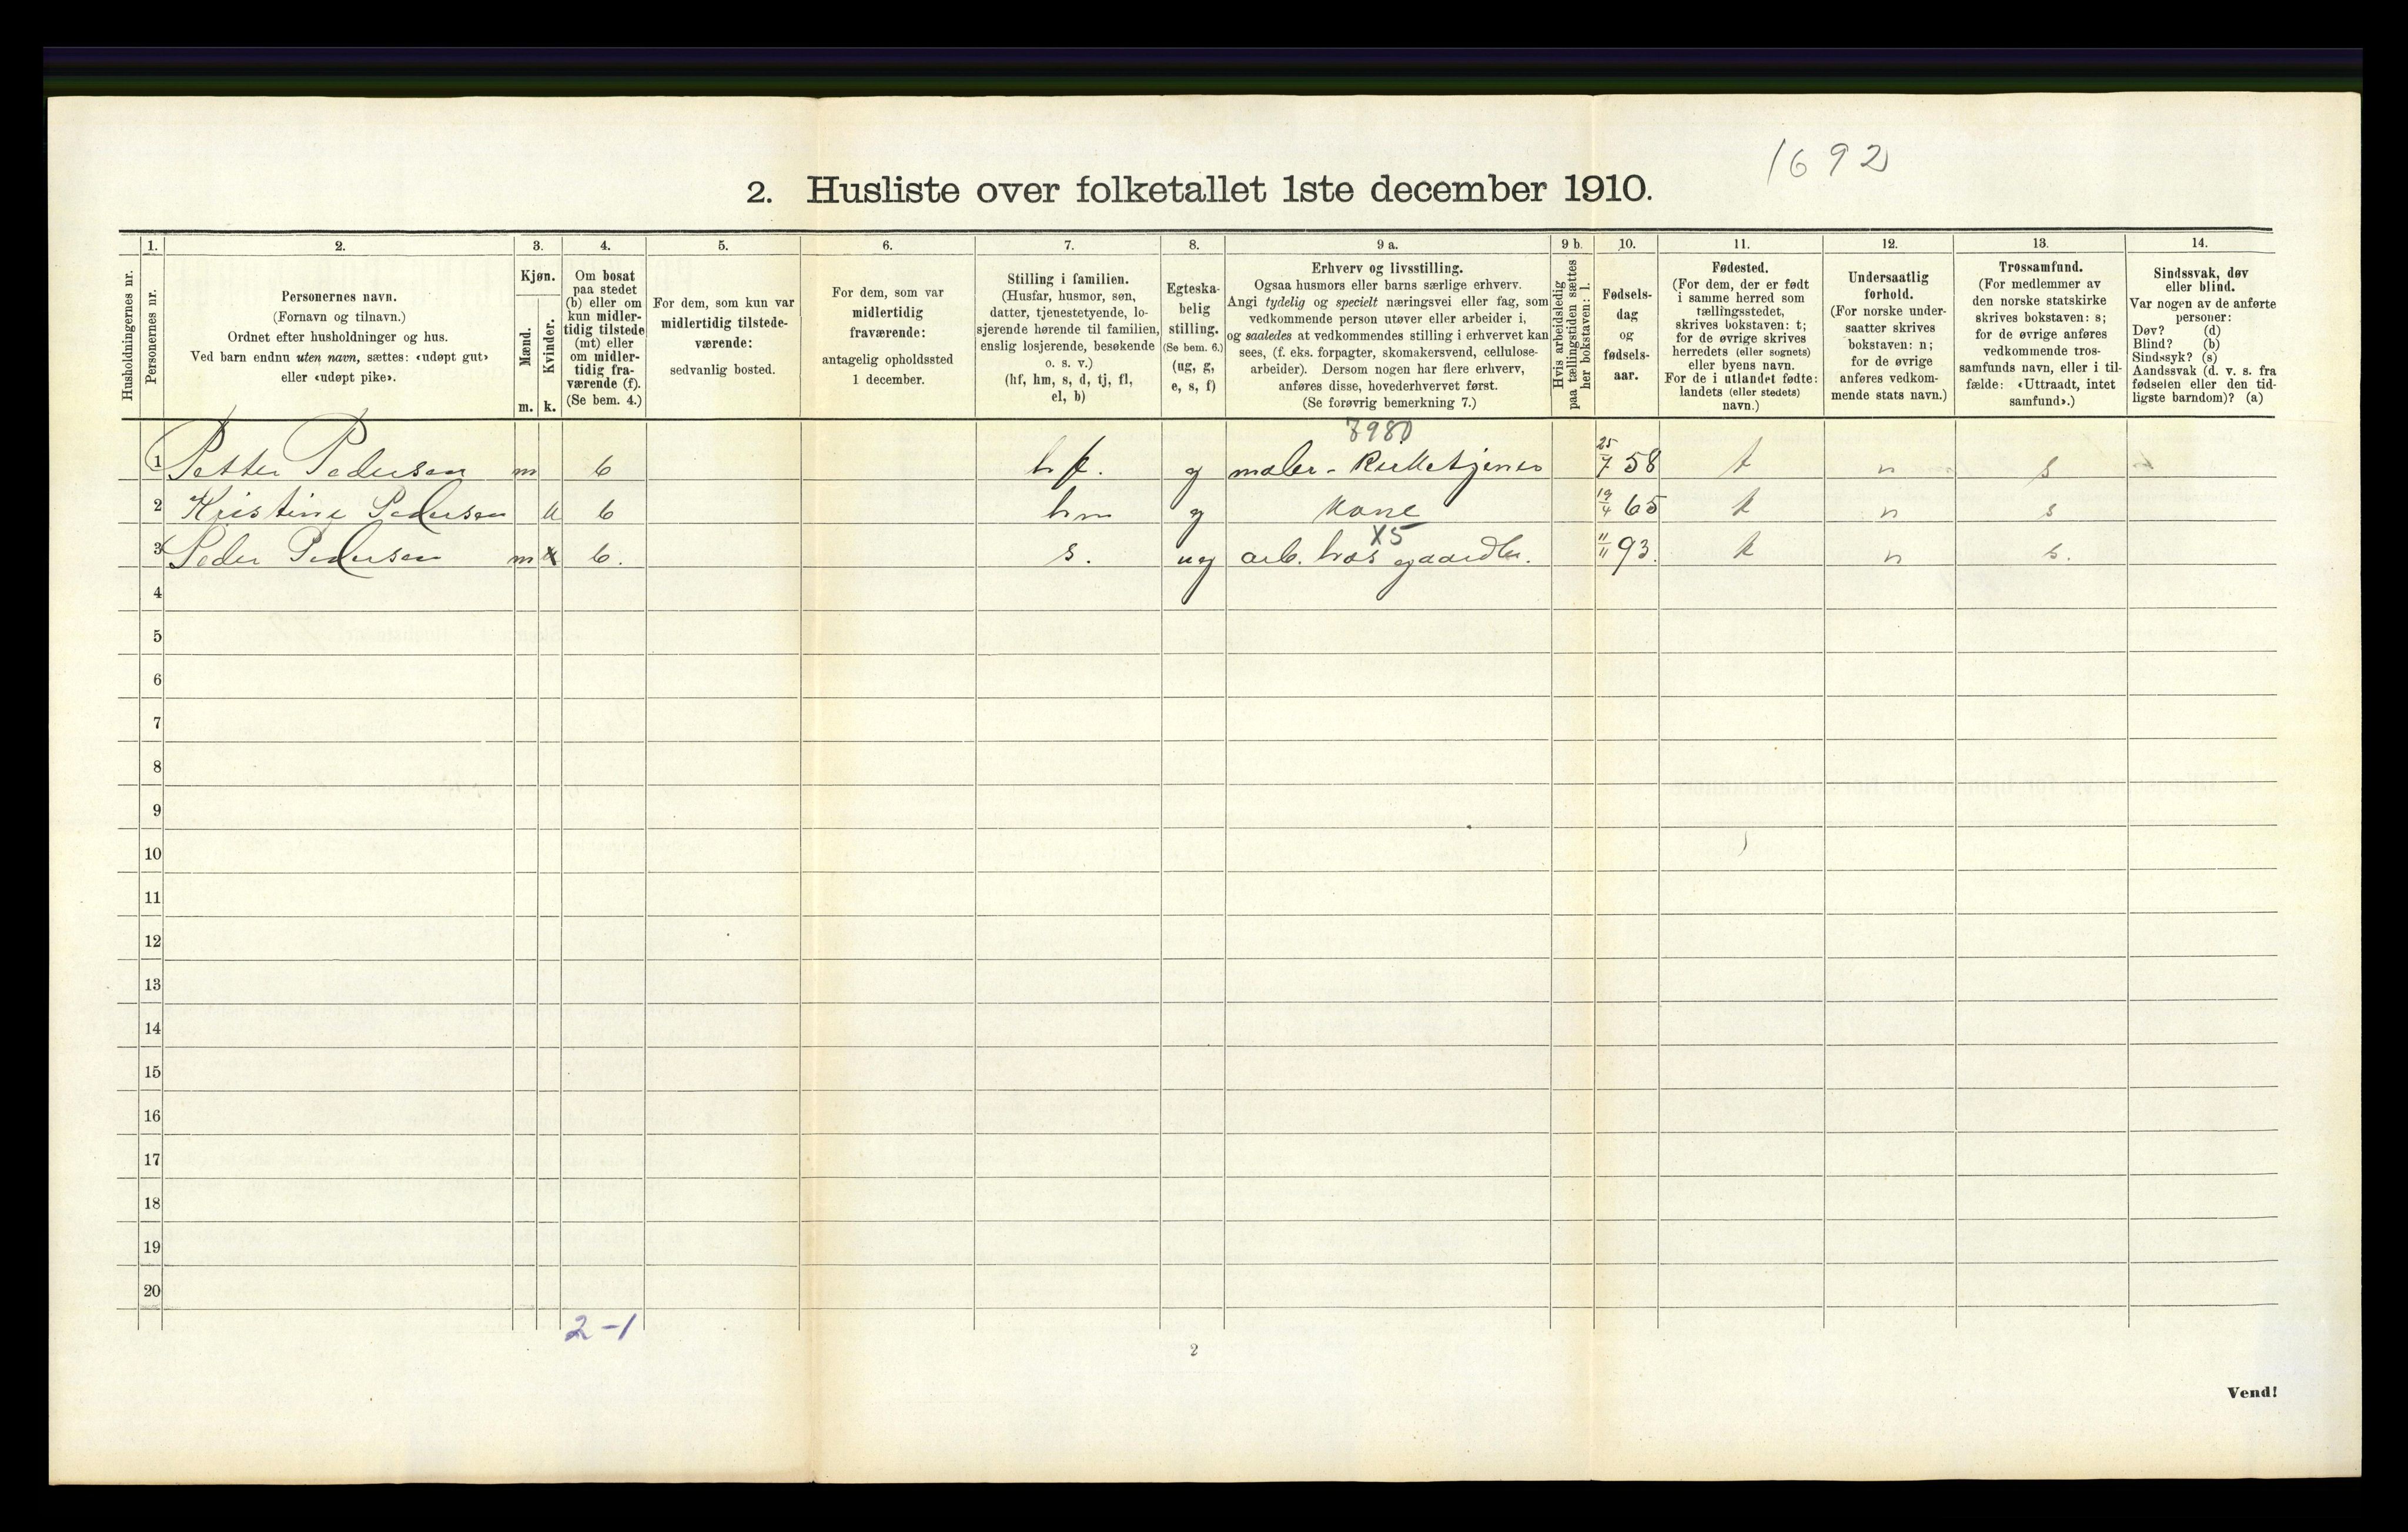 1692
2. Husliste over folketallet 1ste december 1910.
1. 2. 3. 4. 5. 6. 7. 8. 9 a. 9 b. 10. 11. 12. 13. 14.
Husholdningernes nr.
Personernes nr.
Personernes navn.
(Fornavn og tilnavn.)
Ordnet efter husholdninger og hus.
Ved barn endnu uten navn, sættes: «udøpt gut»
eller «udøpt pike».
Kjøn.
Mænd.
Kvinder.
m. k.
Om bosat
paa stedet
(b) eller om
kun midler-
tidig tilstede
(mt) eller
om midler-
tidig fra-
værende (f).
(Se bem. 4.)
For dem, som kun var
midlertidig tilstede-
værende:
sedvanlig bosted.
For dem, som var
midlertidig
fraværende:
antagelig opholdssted
1 december.
Stilling i familien.
(Husfar, husmor, søn,
datter, tjenestetyende, lo-
sjerende hørende til familien,
enslig losjerende, besøkende
o. s. v.)
(hf, hm, s, d, tj, fl,
el, b)
Egteska-
belig
stilling.
(Se bem. 6.)
(ug, g,
e, s, f)
Erhverv og livsstilling.
Ogsaa husmors eller barns særlige erhverv.
Angi tydelig og specielt næringsvei eller fag, som
vedkommende person utøver eller arbeider i,
og saaledes at vedkommendes stilling i erhvervet kan
sees, (f. eks. forpagter, skomakersvend, cellulose-
arbeider). Dersom nogen har flere erhverv,
anføres disse, hovederhvervet først.
(Se forøvrig bemerkning 7.)
Hvis arbeidsledig
paa tællingstiden sættes
her bokstaven: l.
Fødsels-
dag
og
fødsels-
aar.
Fødested.
(For dem, der er født
i samme herred som
tællingsstedet,
skrives bokstaven: t;
for de øvrige skrives
herredets (eller sognets)
eller byens navn.
For de i utlandet fødte:
landets (eller stedets)
navn.)
Undersaatlig
forhold.
(For norske under-
saatter skrives
bokstaven: n;
for de øvrige
anføres vedkom-
mende stats navn.)
Trossamfund.
(For medlemmer av
den norske statskirke
skrives bokstaven: s;
for de øvrige anføres
vedkommende tros-
samfunds navn, eller i til-
fælde: «Uttraadt, intet
samfund».)
Sindssvak, døv
eller blind.
Var nogen av de anførte
personer:
Døv? (d)
Blind? (b)
Sindssyk? (s)
Aandssvak (d. v. s. fra
fødselen eller den tid-
ligste barndom)? (a)
8980
1 Petter Pedersen m b hf. g maler - Kirketjener 25/7 58 t n s
2 Kristine Pedersen k b hm g Kone 19/4 65 t n s
X5
3 Peder Pedersen m b. s. ug arb. hos gaardbr. 11/11 93. t n s.
4
5
6
7
8
9
10
11
12
13
14
15
16
17
18
19
20
2-1
2
Vend!